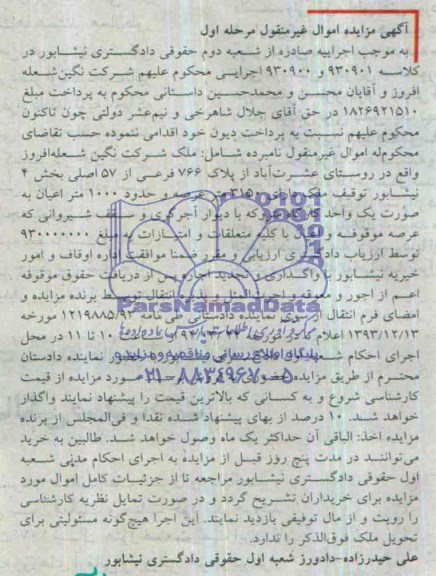 آگهی مزایده اموال غیرمنقول مرحله اول
به موجب اجراییه صادره از شعبه دوم حقوقی دادگستری نیشابور در
کلاسه ۹۳۰۹۰۱ و ۹۳۰۹۰۰ اجرایی محکوم علیهم شرکت نگین‌شعله
افروز و آقایان محسن و محمدحسین داستانی محکوم به پرداخت مبلغ
۱۸۲۶۹۲۱۵۱۰ در حق آقای جلال شاهرخی و نیم‌عشر دولتی چون تاکنون
محکوم علیهم نسبت به پرداخت دیون خود اقدامی ننموده حسب تقاضای
محکوم‌له اموال غیرمنقول نامبرده شامل: ملک شرکت نگین شعله‌افروز
واقع در روستای عشرت‌آباد از پلاک ۷۶۶ فرعی از ۵۷ اصلی بخش ۴
نیشابور توقیف عرصه و حدود ۱۰۰۰ متر اعیان به
صورت یک واحد با دیوار آجرکاری و سقف شیروانی که
عرصه موقوفه و با کلیه متعلقات و امتیازات به مبلغ ۹۳۰۰۰۰۰۰۰۰
توسط ارزیاب دادگستری ارزیابی و مقرر ضمنا موافقت اداره اوقاف و امور
خیریه نیشابور با واگذاری و تجدید اجاره پس از دریافت حقوق موقوفه
اعم از اجور و برنده مزایده و
امضای فرم انتقال از سوی نماینده دادستانی ۱۲۱۹۸۸۵/۹۳ مورخه
۱۳۹۳/۱۲/۱۳ اعلام ۱۰ تا ۱۱ در محل
اجرای احکام نماینده دادستان
محترم از طریق مزایده مورد مزایده از قیمت
کارشناسی شروع و به کسانی که بالاترین قیمت را پیشنهاد نمایند واگذار
خواهد شد. ۱۰ درصد از بهای پیشنهاد شده نقدا و فی‌المجلس از برنده
مزایده اخذ: الباقی آن حداکثر یک ماه وصول خواهد شد. طالبین به خرید
می‌توانند در مدت پنج روز قبل از مزایده به اجرای احکام مدنی شعبه
اول حقوقی دادگستری نیشابور مراجعه تا از جزئیات کامل اموال مورد
مزایده برای خریداران تشریح گردد و در صورت تمایل نظریه کارشناسی
را رویت و از مال توقیفی بازدید نمایند. این اجرا هیچ‌گونه مسئولیتی برای
تحویل ملک فوق‌الذکر را ندارد.
علی حیدرزاده-دادورز شعبه اول حقوقی دادگستری نیشابور
ParsNamadData
پایگاه اطلاع رسانی مناقصه و مزایده
۰۲۱-۸۸۳۴۹۶۷۰-۵